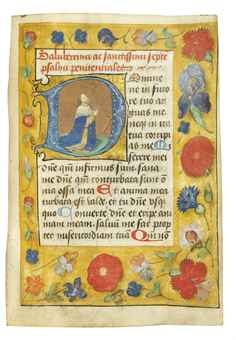 Saluterrima ac sanctissimi septe
psalmi penitenciales
Domine
ne in furo
re tuo ar
guas me
neq in ira
tua corripi
as me Mi
serere mei
dñe qm̄ infirmus sum. sana
me dñe qm̄ conturbata sunt o
nia ossa mea Et anima mea
turbata est valde. et tu dñe usq
quo Conuerte dñe et eripe ani
mam meam. saluū me fac prop
ter misericordiam tuā Qm̄ nō